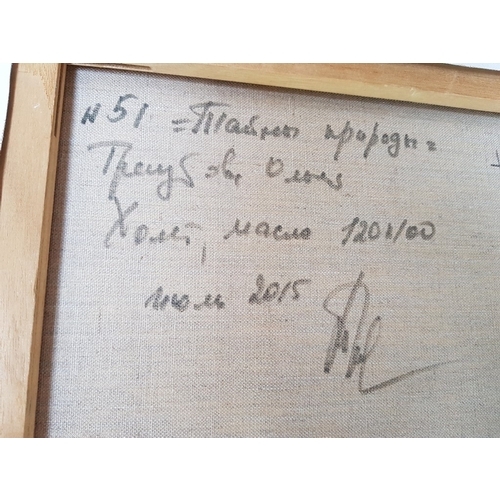 №51 =Тайны природы=
Трегуб Ольга
Холст, масло 120х100
июль 2015